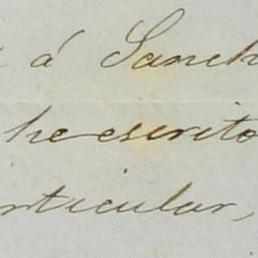 á Sanch
he escrito
rticular,